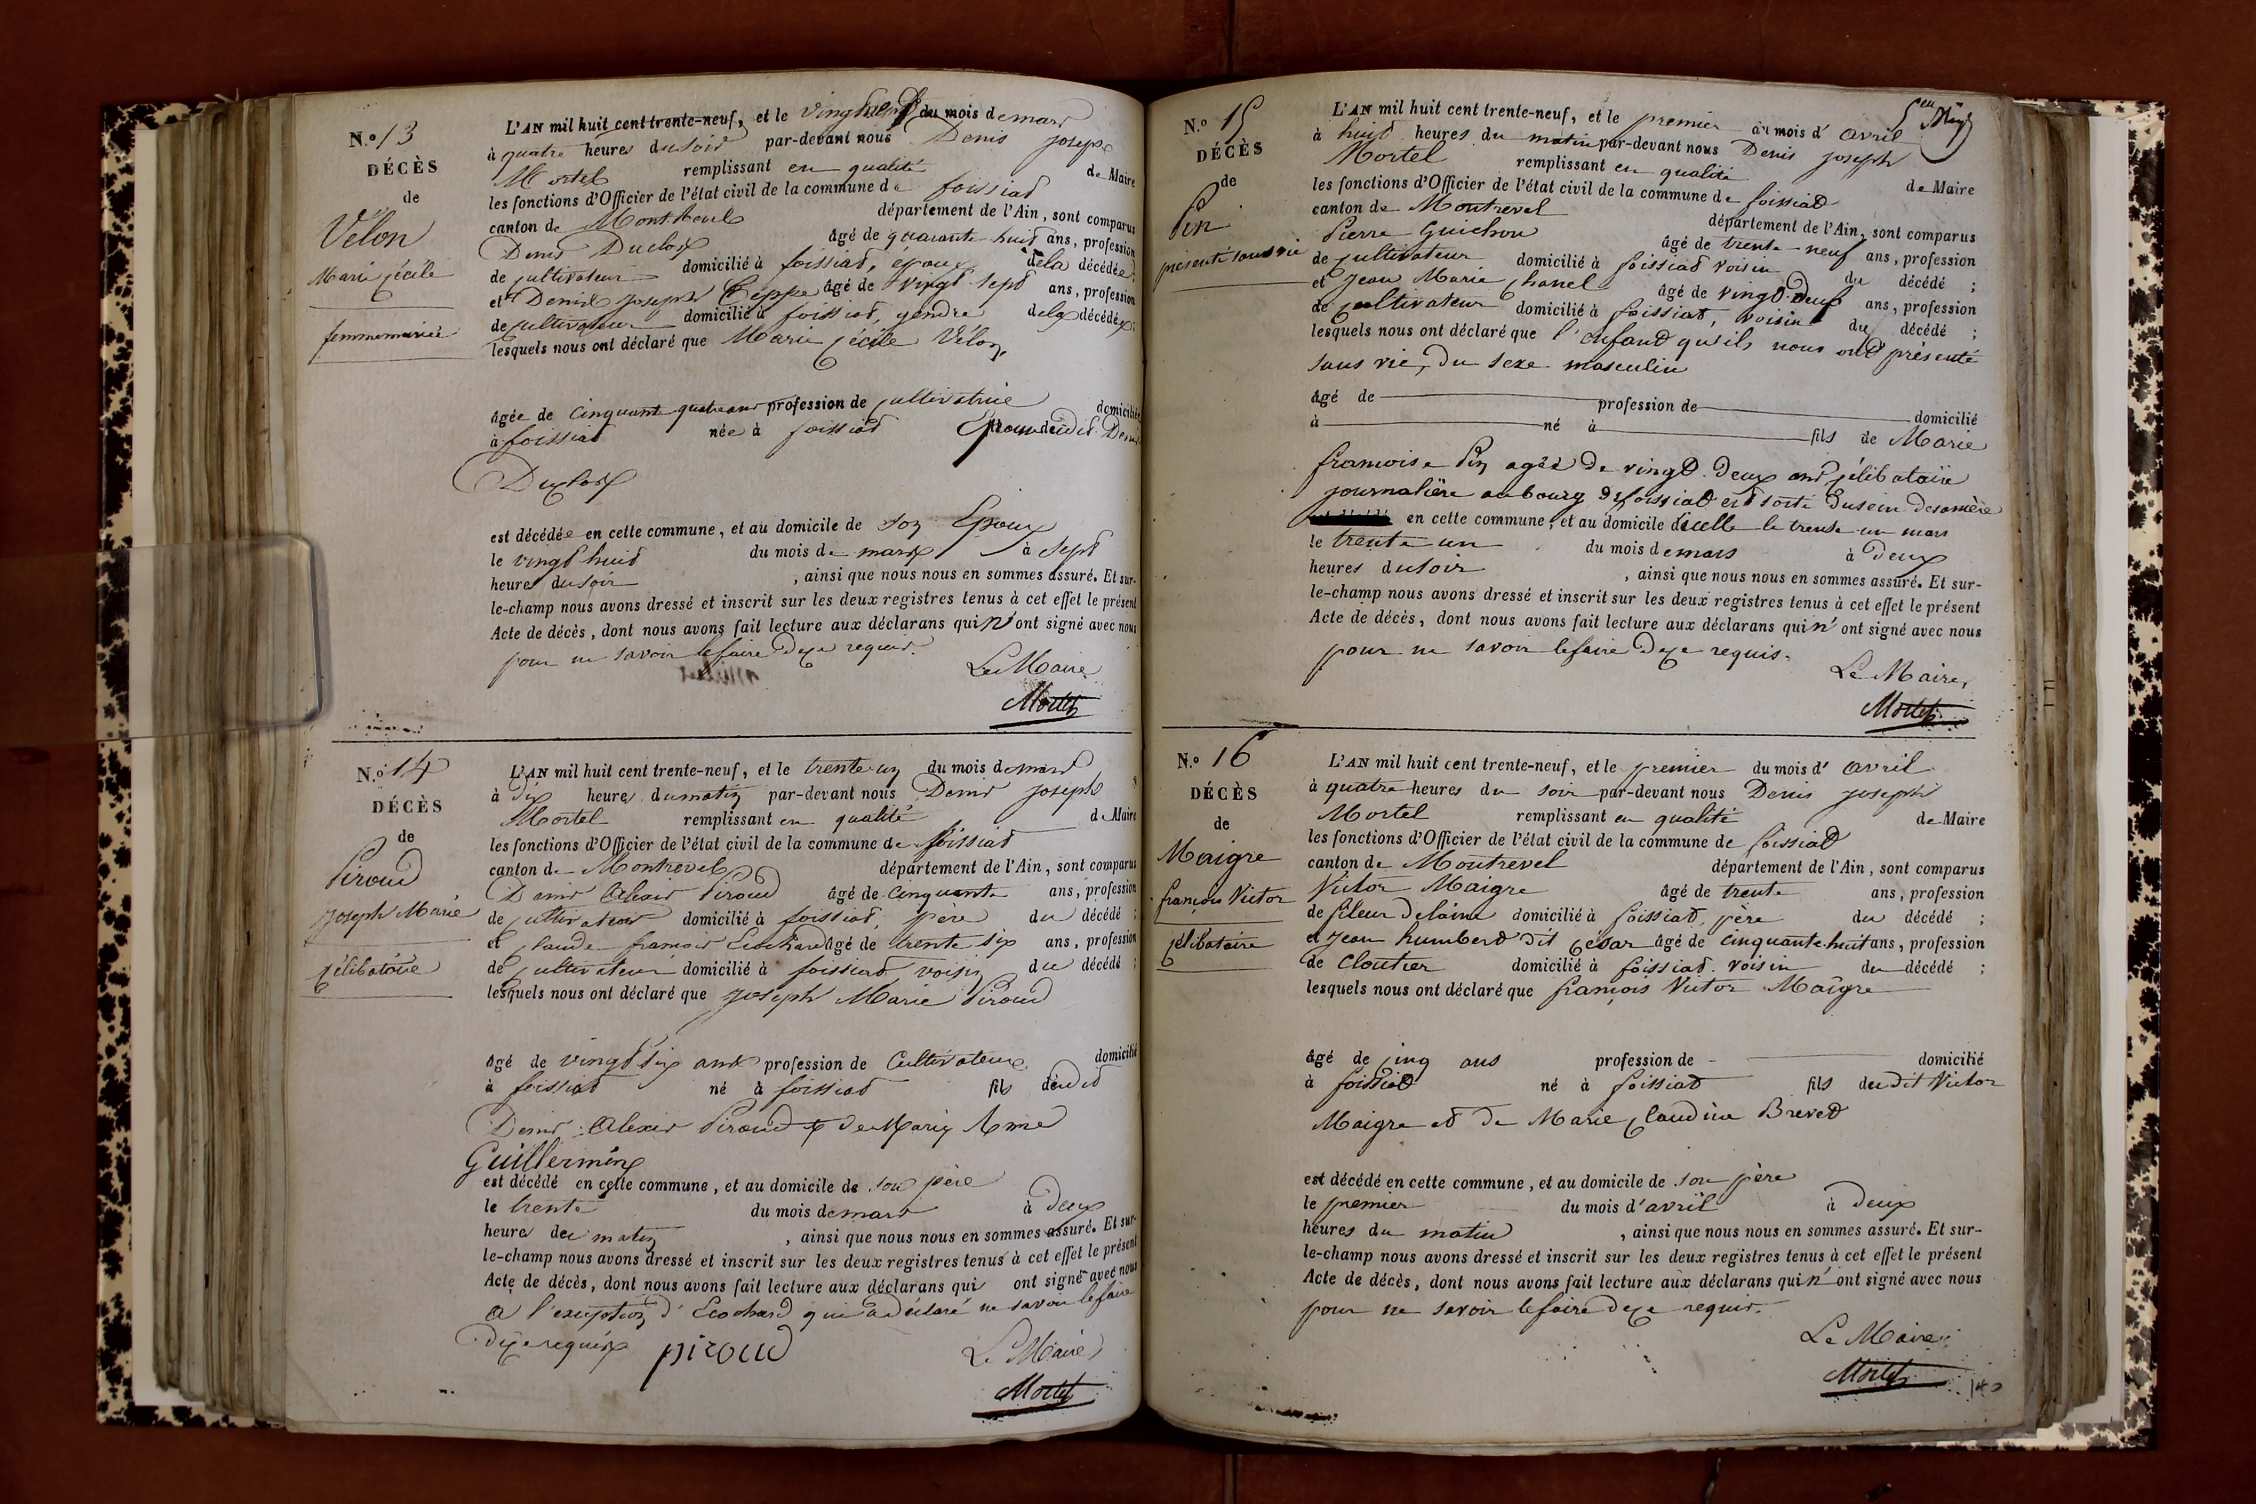 N.o 13
DÉCÈS
de
Vélon
Marie Cécile
femme mariée
L'AN mil huit cent trente-neuf, et le vingt neuf du mois de mars
à quatre heures du soir par-devant nous Denis Joseph
Mortel remplissant en qualité de Maire
les fonctions d'Officier de l'état civil de la commune de foissiat
canton de Montrevel département de l'Ain, sont comparus
Denis Duclos âgé de quarante huit ans, profession
de cultivateur domicilié à foissiat, époux de la décédée ;
et Denis Joseph Ceppe âgé de vingt sept ans, profession
de cultivateur domicilié à foissiat, gendre de la décédée ;
lesquels nous ont déclaré que Marie Cécile Vélon,
âgée de cinquante quatre ans profession de cultivatrice domiciliée
à foissiat née à foissiat Epouse dudit Denis
Duclos
est décédée en cette commune, et au domicile de son Epoux
le vingt huit du mois de mars à sept
heures du soir , ainsi que nous nous en sommes assuré. Et sur-
le-champ nous avons dressé et inscrit sur les deux registres tenus à cet effet le présent
Acte de décès, dont nous avons fait lecture aux déclarans qui n'ont signé avec nous
pour ne savoir le faire de ce requis.
Le Maire
Mortel
N.o 14
DÉCÈS
de
Piroud
Joseph Marie
célibataire
L'AN mil huit cent trente-neuf, et le trente un du mois de mars
à dix heures du matin par-devant nous Denis Joseph
Mortel remplissant en qualité de Maire
les fonctions d'Officier de l'état civil de la commune de foissiat
canton de Montrevel département de l'Ain, sont comparus
Denis Alexis Piroud âgé de cinquante ans, profession
de cultivateur domicilié à foissiat, père du décédé ;
et Claude françois Ecochard âgé de trente six ans, profession
de cultivateur domicilié à foissiat voisin du décédé ;
lesquels nous ont déclaré que Joseph Marie Piroud
âgé de vingt six ans profession de Cultivateur domicilié
à foissiat né à foissiat fils dudit
Denis Alexis Piroud & de Marie Aimé
Guillermin
est décédé en cette commune, et au domicile de son père
le trente du mois de mars à deux
heures du matin , ainsi que nous nous en sommes assuré. Et sur-
le-champ nous avons dressé et inscrit sur les deux registres tenus à cet effet le présent
Acte de décès, dont nous avons fait lecture aux déclarans qui ont signé avec nous
à l'exception d'Ecochard qui a déclaré ne savoir le faire
de ce requis piroud Le Maire
Mortel
N.o 15
DÉCÈS
de
Pin
présenté sans vie
L'AN mil huit cent trente-neuf, et le premier du mois d' avril
à huit heures du matin par-devant nous Denis Joseph
Mortel remplissant en qualité de Maire
les fonctions d'Officier de l'état civil de la commune de foissiat
canton de Montrevel département de l'Ain, sont comparus
Pierre Guichon âgé de trente-neuf ans, profession
de cultivateur domicilié à foissiat voisin du décédé ;
et Jean Marie Chanel âgé de vingt-deux ans, profession
de cultivateur domicilié à foissiat, voisin du décédé ;
lesquels nous ont déclaré que l'enfant qu'ils nous ont présenté
sans vie, du sexe masculin
âgé de profession de domicilié
à né à fils de Marie
francoise Pin agée de vingt-deux ans célibataire
journalière au bourg de foissiat est sorti du sein de sa mère
en cette commune, et au domicile d'icelle le trente un mars
le trente un du mois de mars à deux
heures du soir , ainsi que nous nous en sommes assuré. Et sur-
le-champ nous avons dressé et inscrit sur les deux registres tenus à cet effet le présent
Acte de décès, dont nous avons fait lecture aux déclarans qui n'ont signé avec nous
pour ne savoir le faire de ce requis.
Le Maire,
Mortel
N.o 16
DÉCÈS
de
Maigre
françois Victor
célibataire
L'AN mil huit cent trente-neuf, et le premier du mois d' avril
à quatre heures du soir par-devant nous Denis Joseph
Mortel remplissant en qualité de Maire
les fonctions d'Officier de l'état civil de la commune de foissiat
canton de Montrevel département de l'Ain, sont comparus
Victor Maigre âgé de trente ans, profession
de fileur de laine domicilié à foissiat, père du décédé ;
et Jean humbert dit César âgé de cinquante huit ans, profession
de Cloutier domicilié à foissiat voisin du décédé ;
lesquels nous ont déclaré que françois Victor Maigre
âgé de cinq ans profession de domicilié
à foissiat né à foissiat fils du dit Victor
Maigre et de Marie Claudine Brevet
est décédé en cette commune, et au domicile de son père
le premier du mois d'avril à deux
heures du matin , ainsi que nous nous en sommes assuré. Et sur-
le-champ nous avons dressé et inscrit sur les deux registres tenus à cet effet le présent
Acte de décès, dont nous avons fait lecture aux déclarans qui n'ont signé avec nous
pour ne savoir le faire de ce requis.
Le Maire
Mortel